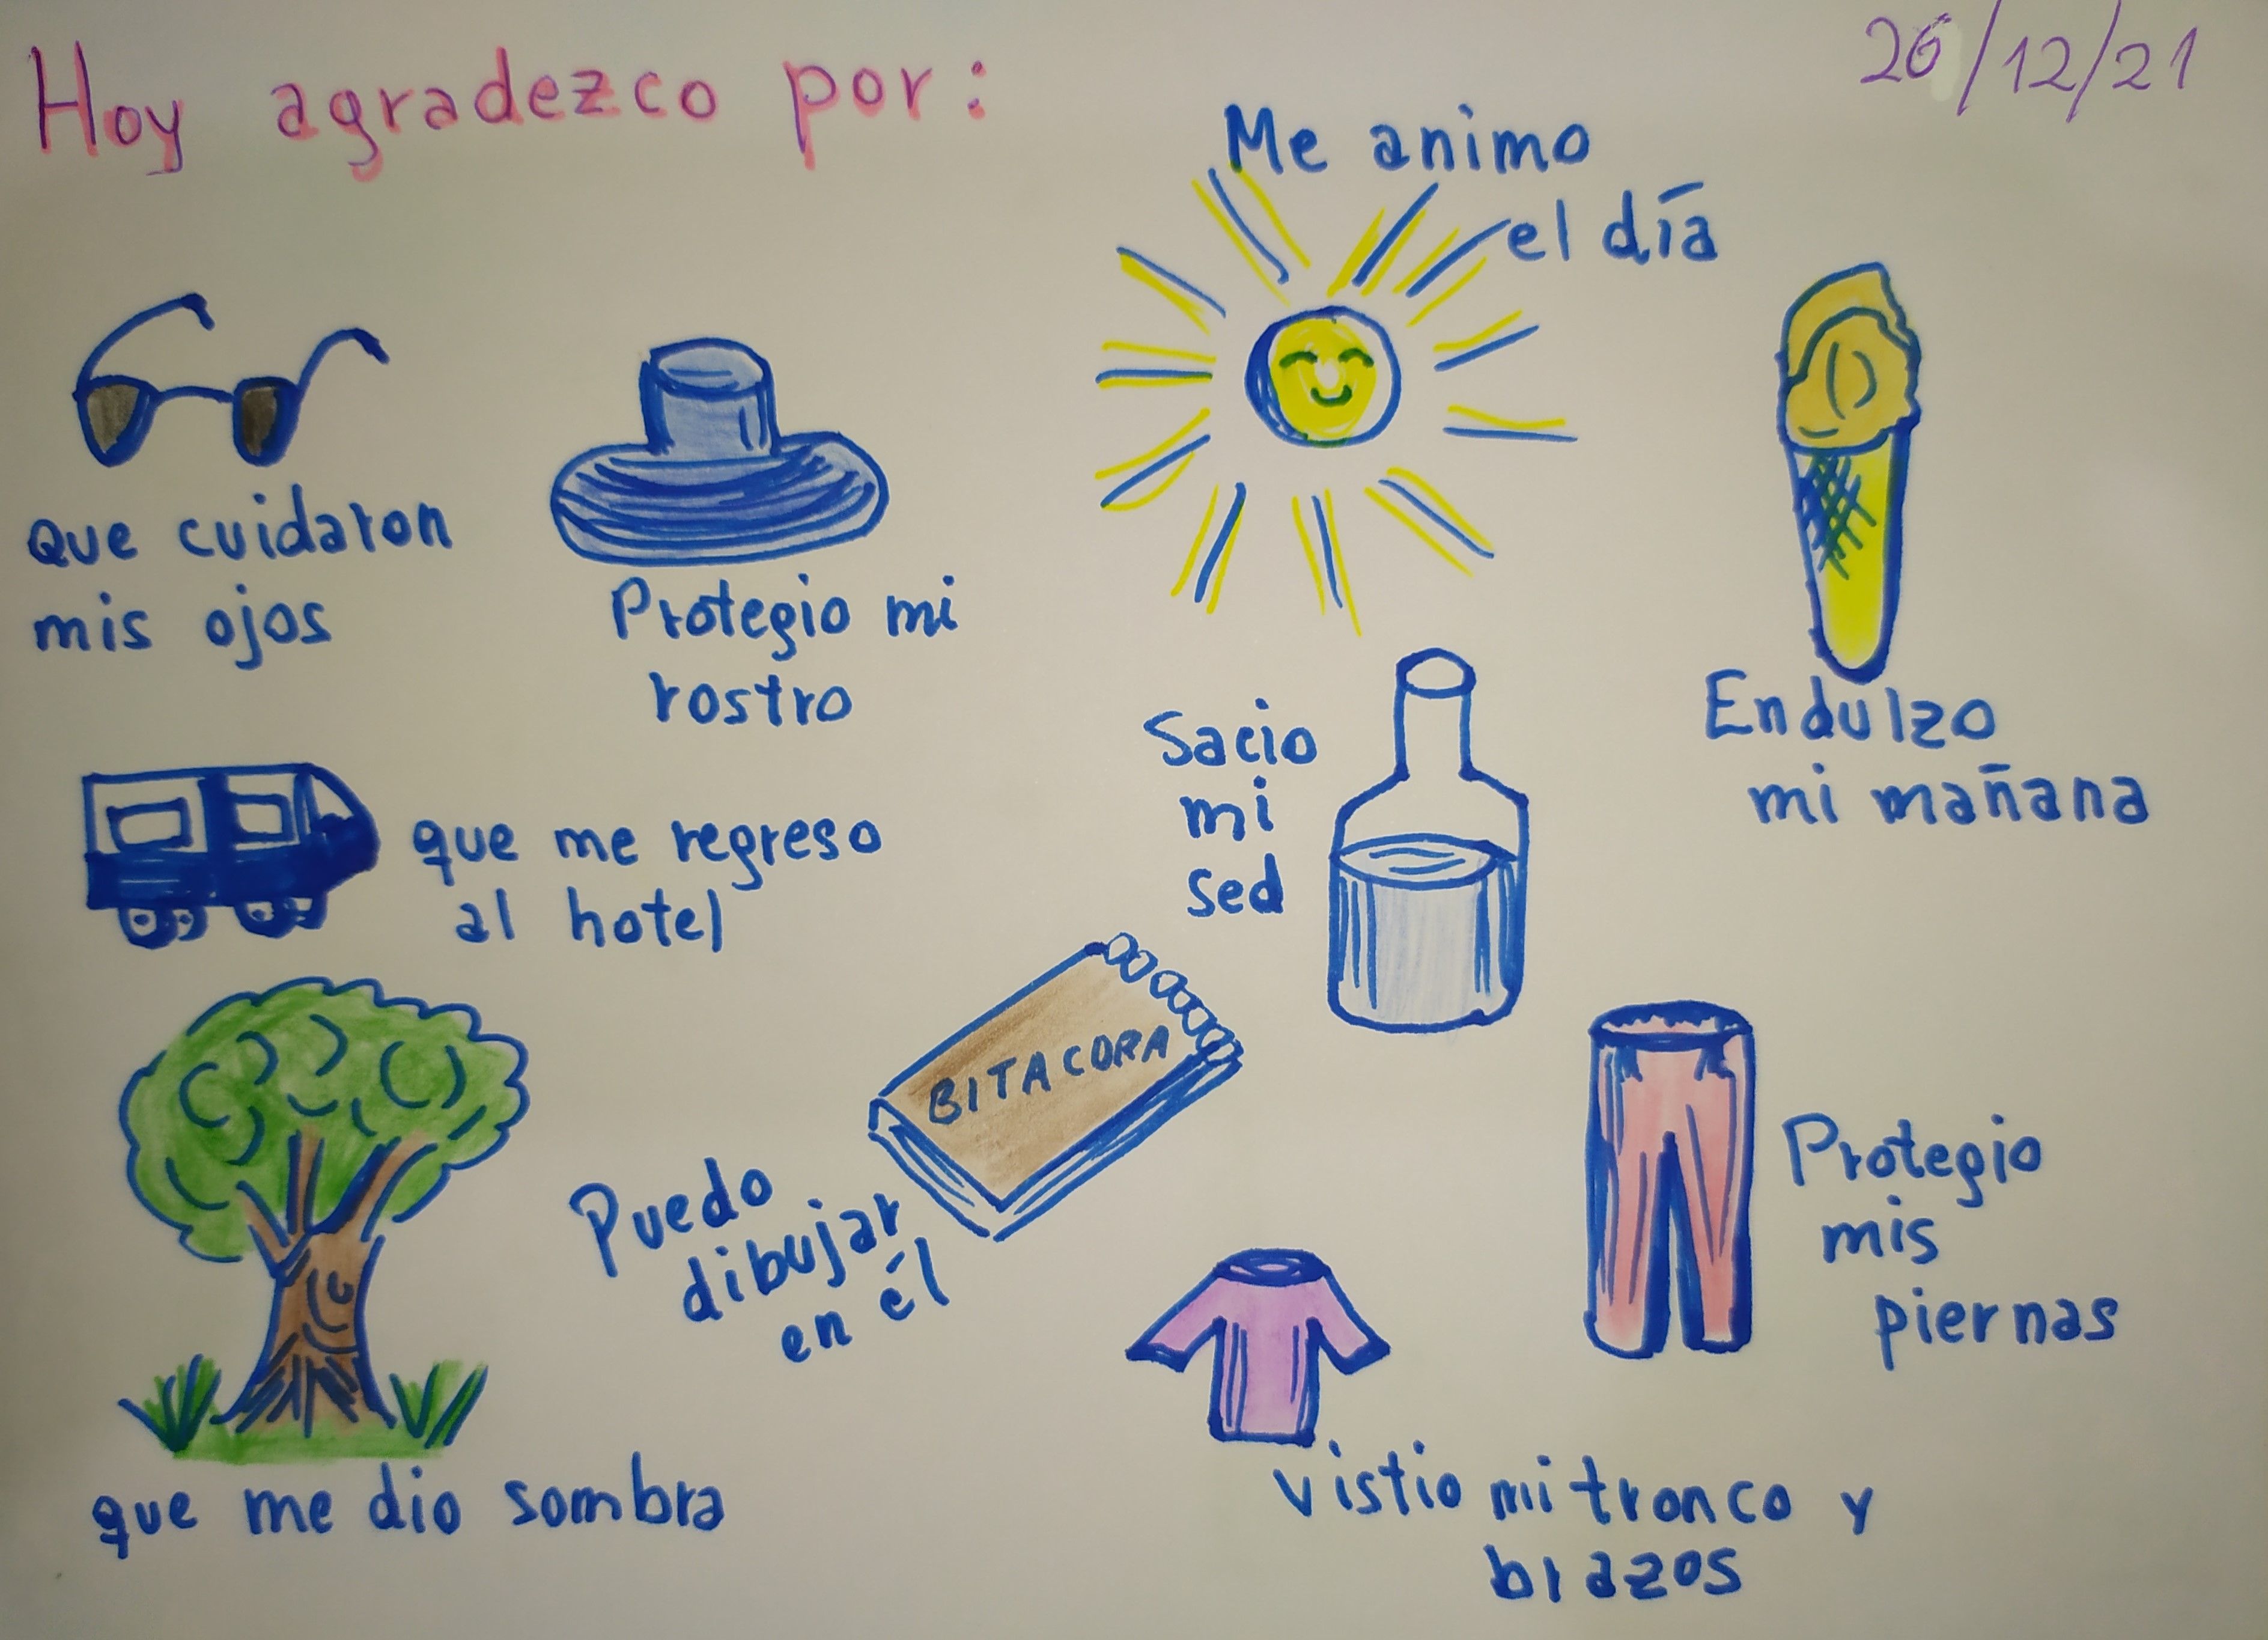 Hoy agradezco por:
26/12/21
Me animo
el día
que cuidaron
mis ojos
Protegio mi
rostro
Endulzo
mi mañana
Sacio
mi
sed
que me regreso
al hotel
BITACORA
Puedo
dibujar
en él
Protegio
mis
piernas
que me dio sombra
vistio mi tronco y
brazos